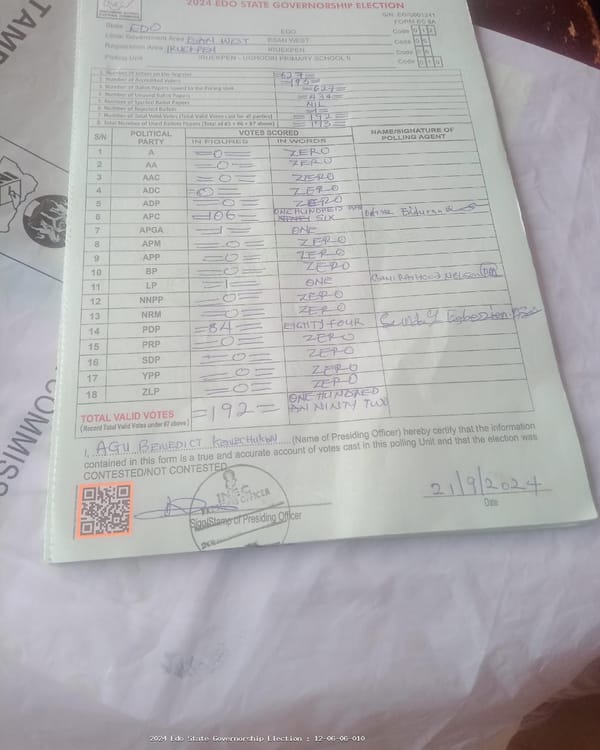 2024 EDO STATE GOVERNORSHIP ELECTION
State EDO EDO Code
Local Government Area ESAN WEST ESAN WEST Code
Registration Area IRUEKPEN IRUEKPEN Code
Polling Unit IRUEKPEN - UGBODIN PRIMARY SCHOOL II Code
1. Number of Voters on the Register =627=
2. Number of Accredited Voters =193=
3. Number of Ballot Papers Issued to the Polling Unit =627=
4. Number of Unused Ballot Papers =434=
5. Number of Spoiled Ballot Papers NIL
6. Number of Rejected Ballots =1=
7. Number of Total Valid Votes (Total Valid Votes cast for all parties) =192=
8. Total Number of Used Ballot Papers (Total of #5 + #6 + #7 above) =193=
S/N POLITICAL PARTY VOTES SCORED NAME/SIGNATURE OF POLLING AGENT
IN FIGURES IN WORDS
1 A =0= ZERO
2 AA =0= ZERO
3 AAC =0= ZERO
4 ADC =0= ZERO
5 ADP =0= ZERO
6 APC =106 ONE HUNDRED AND SIX
7 APGA =1= ONE
8 APM =0= ZERO
9 APP =0= ZERO
10 BP =0= ZERO
11 LP =1= ONE
12 NNPP =0= ZERO
13 NRM =0= ZERO
14 PDP =84= EIGHTY FOUR Sunday
15 PRP =0= ZERO
16 SDP =0= ZERO
17 YPP =0= ZERO
18 ZLP =0= ZERO
TOTAL VALID VOTES =192= ONE HUNDRED AN NINTY TWO
(Record Total Valid Votes under #7 above)
I, AGU BENEDICT (Name of Presiding Officer) hereby certify that the information
contained in this form is a true and accurate account of votes cast in this polling Unit and that the election was
CONTESTED/NOT CONTESTED
INEC
OFFICER
Sign/Stamp of Presiding Officer
21/9/2024
Date
2024 Edo State Governorship Election : 12-06-06-010